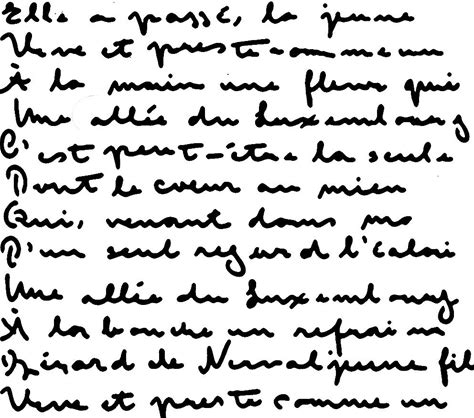 Elle a passé, la jeune
Vive et preste comme un
À la main une fleur qui
Une allée du Luxembourg
C'est peut-être la seule
Dont le cœur au mien
Qui, venant dans ma
D'un seul regard l'éclai
Une allée du Luxembourg
À la bouche un refrain
Gérard de Nerval jeune fil
Vive et preste comme un